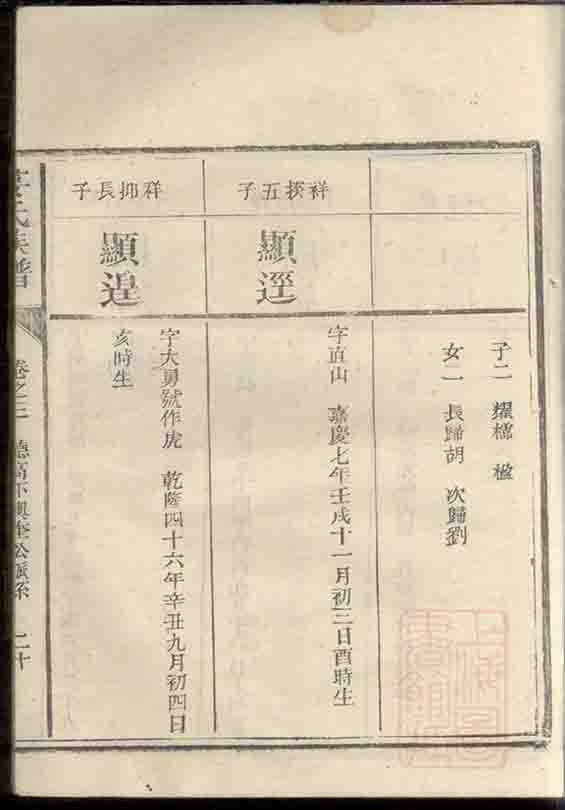 子二 耀樗 楹
女二 長歸胡 次歸劉
祥揆五子
顯逕
字直山 嘉慶七年壬戌十一月初三日酉時生
祥抑長子
顯遑
字大勇號作虎 乾隆四十六年辛丑九月初四日
亥時生
氏族譜
卷之三 德高下興奎公派系 二十
上海圖書館藏